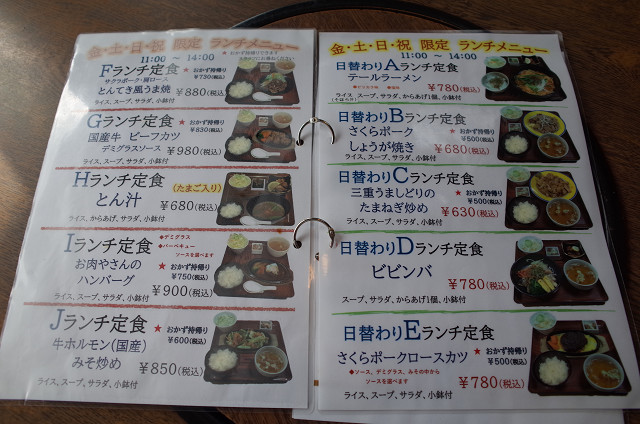 金・土・日・祝 限定 ランチメニュー
11:00 ～ 14:00
Fランチ定食
★ おかず持帰り
￥730(税込)
サクラポーク・肩ロース
とんてき風うま焼
￥880(税込)
ライス、スープ、サラダ、小鉢付
Gランチ定食
★ おかず持帰り
￥830(税込)
国産牛 ビーフカツ
デミグラスソース
￥980(税込)
ライス、スープ、サラダ、小鉢付
Hランチ定食
(たまご入り)
とん汁
￥680(税込)
ライス、からあげ、サラダ、小鉢付
Iランチ定食
◆デミグラス
◆バーベキュー
ソースを選べます
お肉やさんの
ハンバーグ
★ おかず持帰り
￥750(税込)
￥900(税込)
ライス、スープ、サラダ、小鉢付
Jランチ定食
★ おかず持帰り
￥600(税込)
牛ホルモン(国産)
みそ炒め
￥850(税込)
ライス、スープ、サラダ、小鉢付
金・土・日・祝 限定 ランチメニュー
11:00 ～ 14:00
日替わりAランチ定食
テールラーメン
￥780(税込)
ライス、スープ、サラダ、からあげ1個、小鉢付
日替わりBランチ定食
さくらポーク
しょうが焼き
★ おかず持帰り
￥500(税込)
￥680(税込)
ライス、スープ、サラダ、小鉢付
日替わりCランチ定食
三重うましどりの
たまねぎ炒め
★ おかず持帰り
￥500(税込)
￥630(税込)
ライス、スープ、サラダ、小鉢付
日替わりDランチ定食
ビビンバ
￥780(税込)
スープ、サラダ、からあげ1個、小鉢付
日替わりEランチ定食
さくらポークロースカツ
★ おかず持帰り
￥500(税込)
◆ソース、デミグラス、みその中から
ソースを選べます
￥780(税込)
ライス、スープ、サラダ、小鉢付